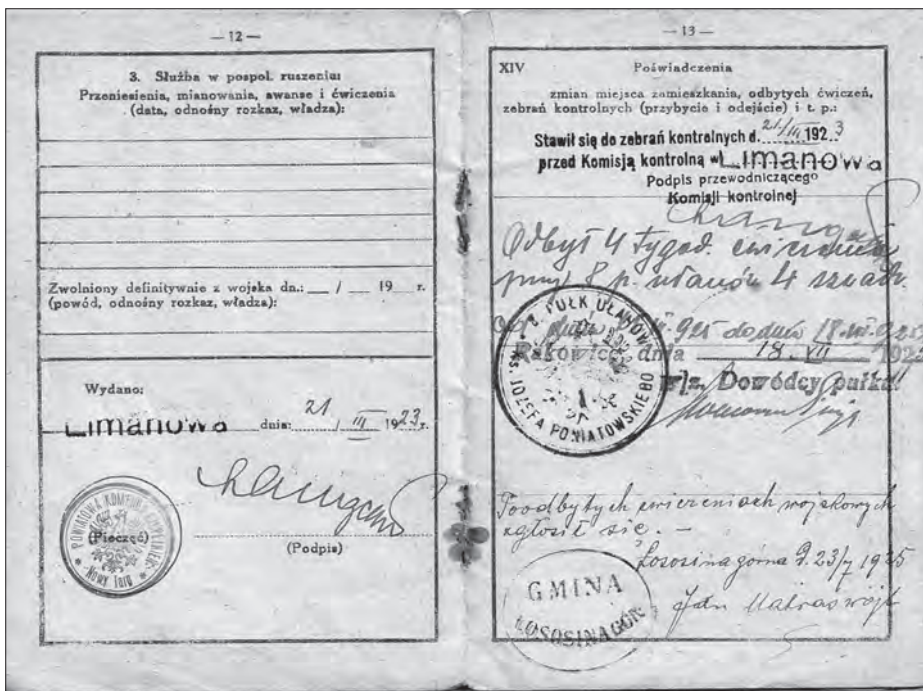 — 12 —
3. Służba w pospol. ruszeniu:
Przeniesienia, mianowania, awanse i ćwiczenia
(data, odnośny rozkaz, władza):
Zwolniony definitywnie z wojska dn.: __ / __ 19 r.
(powód, odnośny rozkaz, władza):
Wydano:
Limanowa dnia: 21 / III 1923 r.
(Pieczęć)
(Podpis)
POWIATOWA KOMENDA UZUPEŁNIEŃ
Nowy Targ
— 13 —
XIV Poświadczenia
zmian miejsca zamieszkania, odbytych ćwiczeń,
zebrań kontrolnych (przybycie i odejście) i t. p.:
Stawił się do zebrań kontrolnych d. 21/III 1923
przed Komisją kontrolną w Limanowa
Podpis przewodniczącego
Komisji kontrolnej
Odbył 4 tygod. ćwiczenia
przy 8 p. ułanów 4 szwadr.
do dnia 18.VII.925
Rakowice, dnia 18. VII 192
w|z. Dowódcy pułku
PUŁK UŁANÓW
KS. JÓZEFA PONIATOWSKIEGO
Po odbytych ćwiczeniach wojskowych
zgłosił się. —
Łososina górna d. 23/7 1925
Jan Matras wójt
GMINA
ŁOSOSINA GÓR.